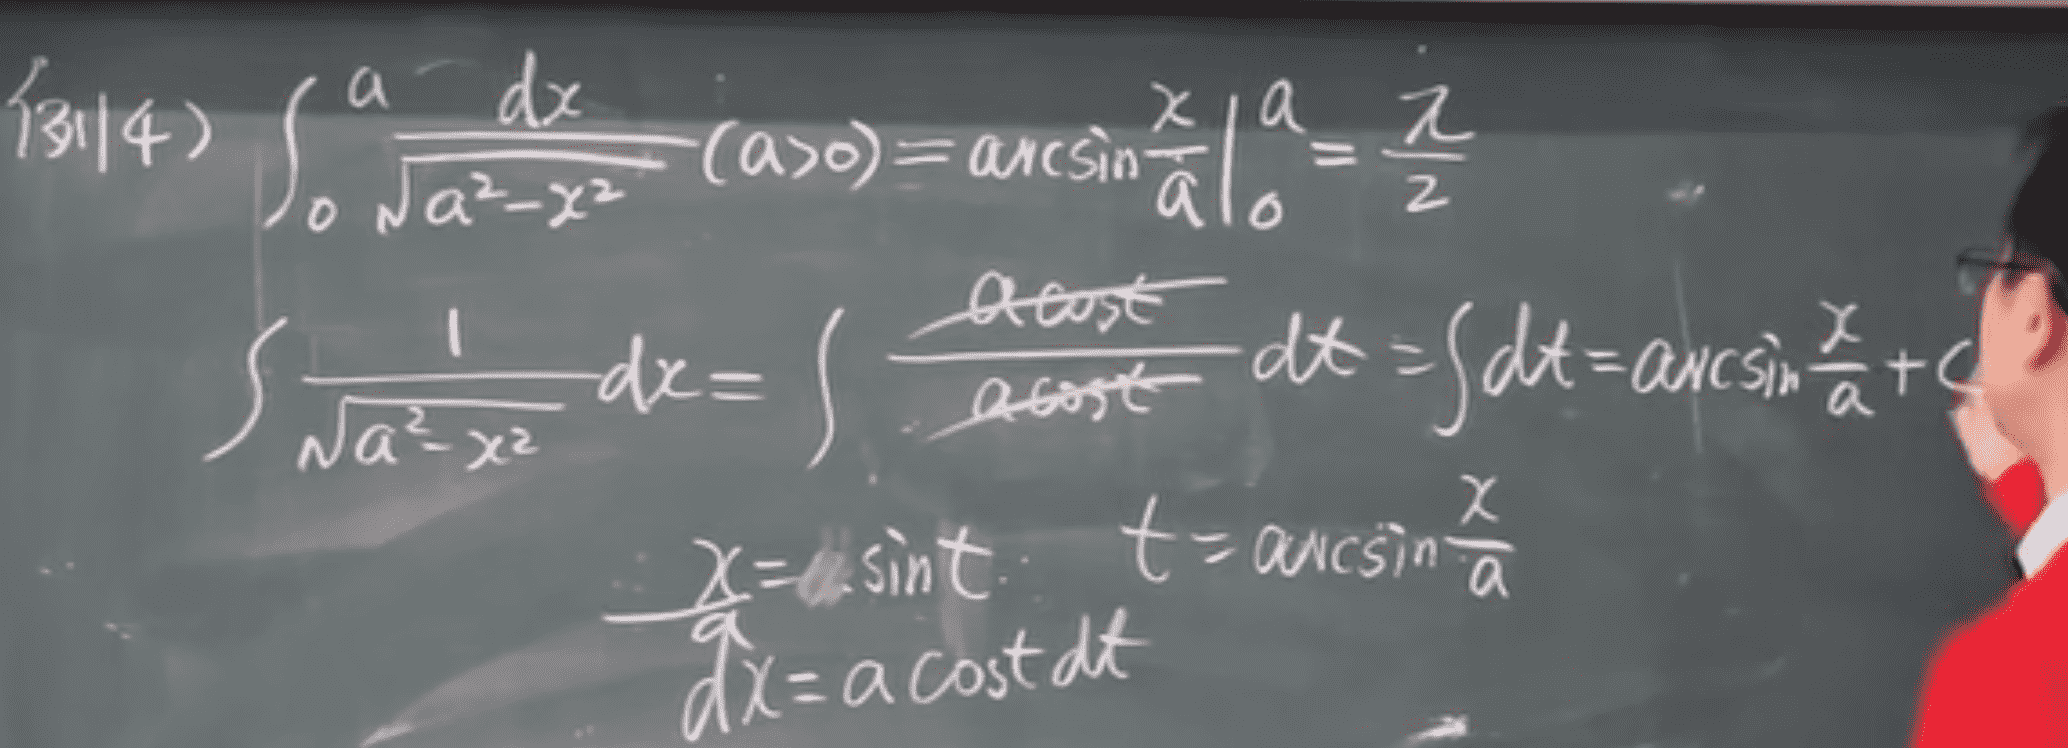 例4) ∫₀ᵃ dx/√(a²-x²) (a>0) = arcsin x/a |₀ᵃ = π/2
∫ 1/√(a²-x²) dx = ∫ a cost/a cost dt = ∫dt = arcsin x/a + C
x/a = sint t = arcsin x/a
dx = a cost dt